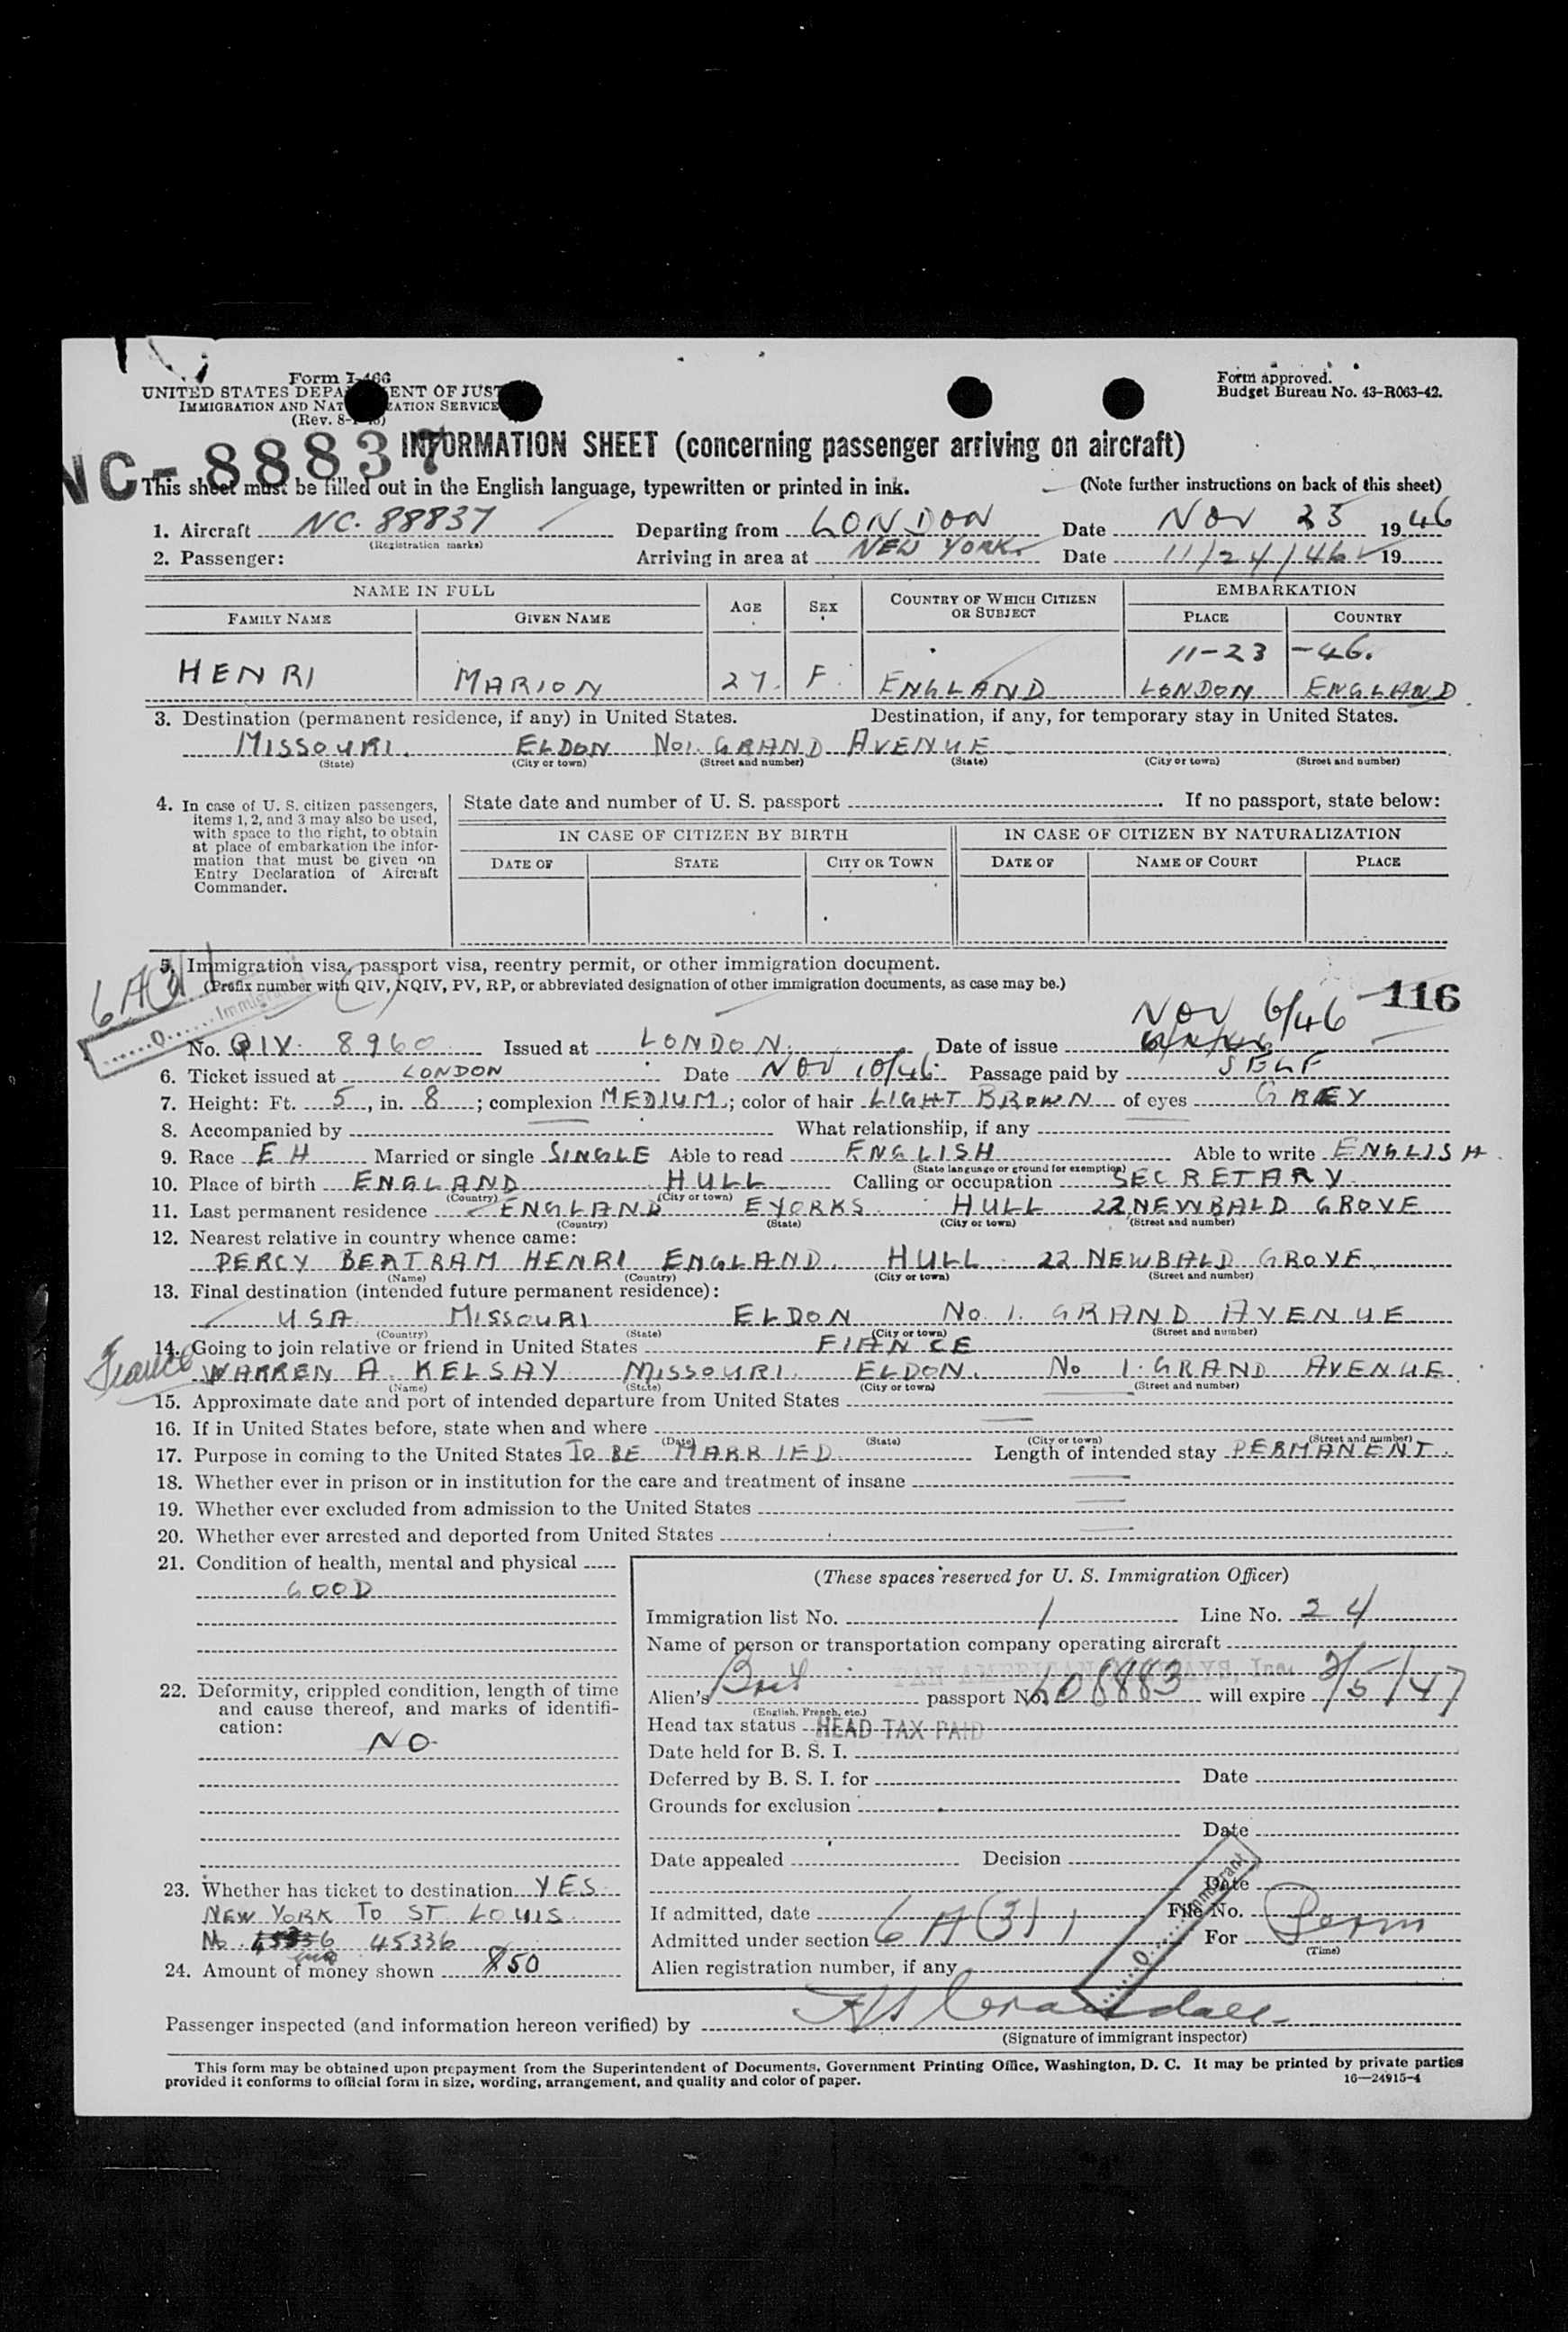 Form I-466
UNITED STATES DEPA ENT OF JUST
IMMIGRATION AND NAT ZATION SERVICE
(Rev. 8-1-45)
Form approved.
Budget Bureau No. 43-R063-42.
NC-88837
INFORMATION SHEET (concerning passenger arriving on aircraft)
This sheet must be filled out in the English language, typewritten or printed in ink.
(Note further instructions on back of this sheet)
1. Aircraft NC. 88837 Departing from LONDON Date NOV 23 1946
(Registration marks)
2. Passenger: Arriving in area at NEW YORK. Date 11/24/46 19
NAME IN FULL AGE SEX COUNTRY OF WHICH CITIZEN OR SUBJECT EMBARKATION
FAMILY NAME GIVEN NAME PLACE COUNTRY
11-23 -46.
HENRI MARION 27. F. ENGLAND LONDON ENGLAND
3. Destination (permanent residence, if any) in United States. Destination, if any, for temporary stay in United States.
MISSOURI. ELDON No1. GRAND AVENUE
(State) (City or town) (Street and number) (State) (City or town) (Street and number)
4. In case of U. S. citizen passengers, items 1, 2, and 3 may also be used, with space to the right, to obtain at place of embarkation the information that must be given on Entry Declaration of Aircraft Commander.
State date and number of U. S. passport . If no passport, state below:
IN CASE OF CITIZEN BY BIRTH IN CASE OF CITIZEN BY NATURALIZATION
DATE OF STATE CITY OR TOWN DATE OF NAME OF COURT PLACE
5. Immigration visa, passport visa, reentry permit, or other immigration document.
(Prefix number with QIV, NQIV, PV, RP, or abbreviated designation of other immigration documents, as case may be.)
116
Immigrant
NOV 6/46
No. QIV. 8960 Issued at LONDON. Date of issue
6. Ticket issued at LONDON Date NOV 10/46. Passage paid by SELF
7. Height: Ft. 5, in. 8; complexion MEDIUM.; color of hair LIGHT BROWN of eyes GREY
8. Accompanied by What relationship, if any
9. Race EH Married or single SINGLE Able to read ENGLISH Able to write ENGLISH
(State language or ground for exemption)
10. Place of birth ENGLAND HULL Calling or occupation SECRETARY
(Country) (City or town)
11. Last permanent residence ENGLAND EYORKS. HULL 22 NEWBALD GROVE
(Country) (State) (City or town) (Street and number)
12. Nearest relative in country whence came:
PERCY BERTRAM HENRI ENGLAND. HULL. 22 NEWBALD GROVE.
(Name) (Country) (City or town) (Street and number)
13. Final destination (intended future permanent residence):
USA MISSOURI ELDON No. 1. GRAND AVENUE
(Country) (State) (City or town) (Street and number)
14. Going to join relative or friend in United States FIANCE
Fiance
WARREN A. KELSAY MISSOURI. ELDON. No 1. GRAND AVENUE.
(Name) (State) (City or town) (Street and number)
15. Approximate date and port of intended departure from United States
16. If in United States before, state when and where
(Date) (State) (City or town) (Street and number)
17. Purpose in coming to the United States TO BE MARRIED Length of intended stay PERMANENT.
18. Whether ever in prison or in institution for the care and treatment of insane
19. Whether ever excluded from admission to the United States
20. Whether ever arrested and deported from United States
21. Condition of health, mental and physical
GOOD
22. Deformity, crippled condition, length of time and cause thereof, and marks of identification:
NO
23. Whether has ticket to destination YES
NEW YORK TO ST LOUIS.
No. 45336 45336
24. Amount of money shown $50
(These spaces reserved for U. S. Immigration Officer)
Immigration list No. 1 Line No. 24
Name of person or transportation company operating aircraft
PAN AMERICAN AIRWAYS, Inc.
Alien's Brit passport No. 108883 will expire 2/5/47
(English, French, etc.)
Head tax status HEAD TAX PAID
Date held for B. S. I.
Deferred by B. S. I. for Date
Grounds for exclusion
Date
Date appealed Decision
Date
If admitted, date File No.
Admitted under section 6A(3)1 For Perm
(Time)
Immigrant
Alien registration number, if any
Passenger inspected (and information hereon verified) by
(Signature of immigrant inspector)
This form may be obtained upon prepayment from the Superintendent of Documents, Government Printing Office, Washington, D. C. It may be printed by private parties
provided it conforms to official form in size, wording, arrangement, and quality and color of paper.
16—24915-4